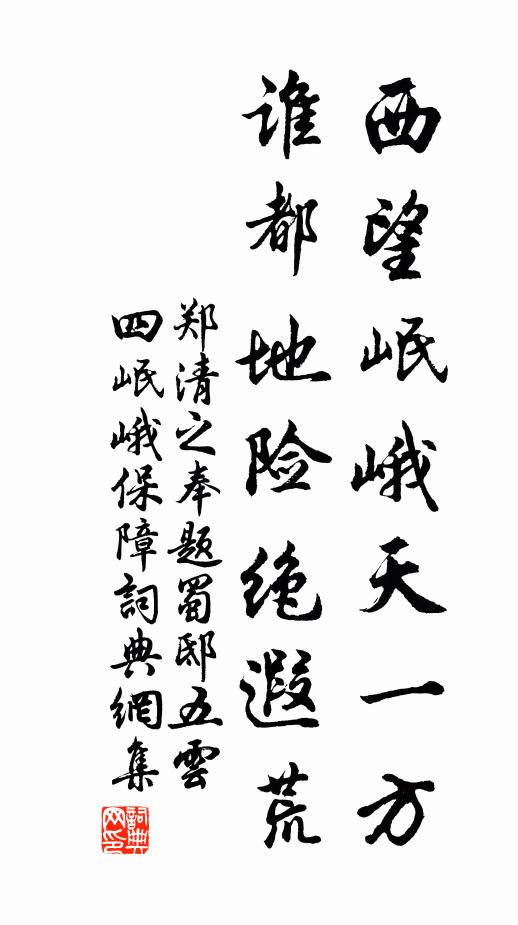 西望岷峨天一方
谁都地险绝遐荒
郑清之奉题蜀邸五雲
四岷峨保障詞典網集
詞典网印